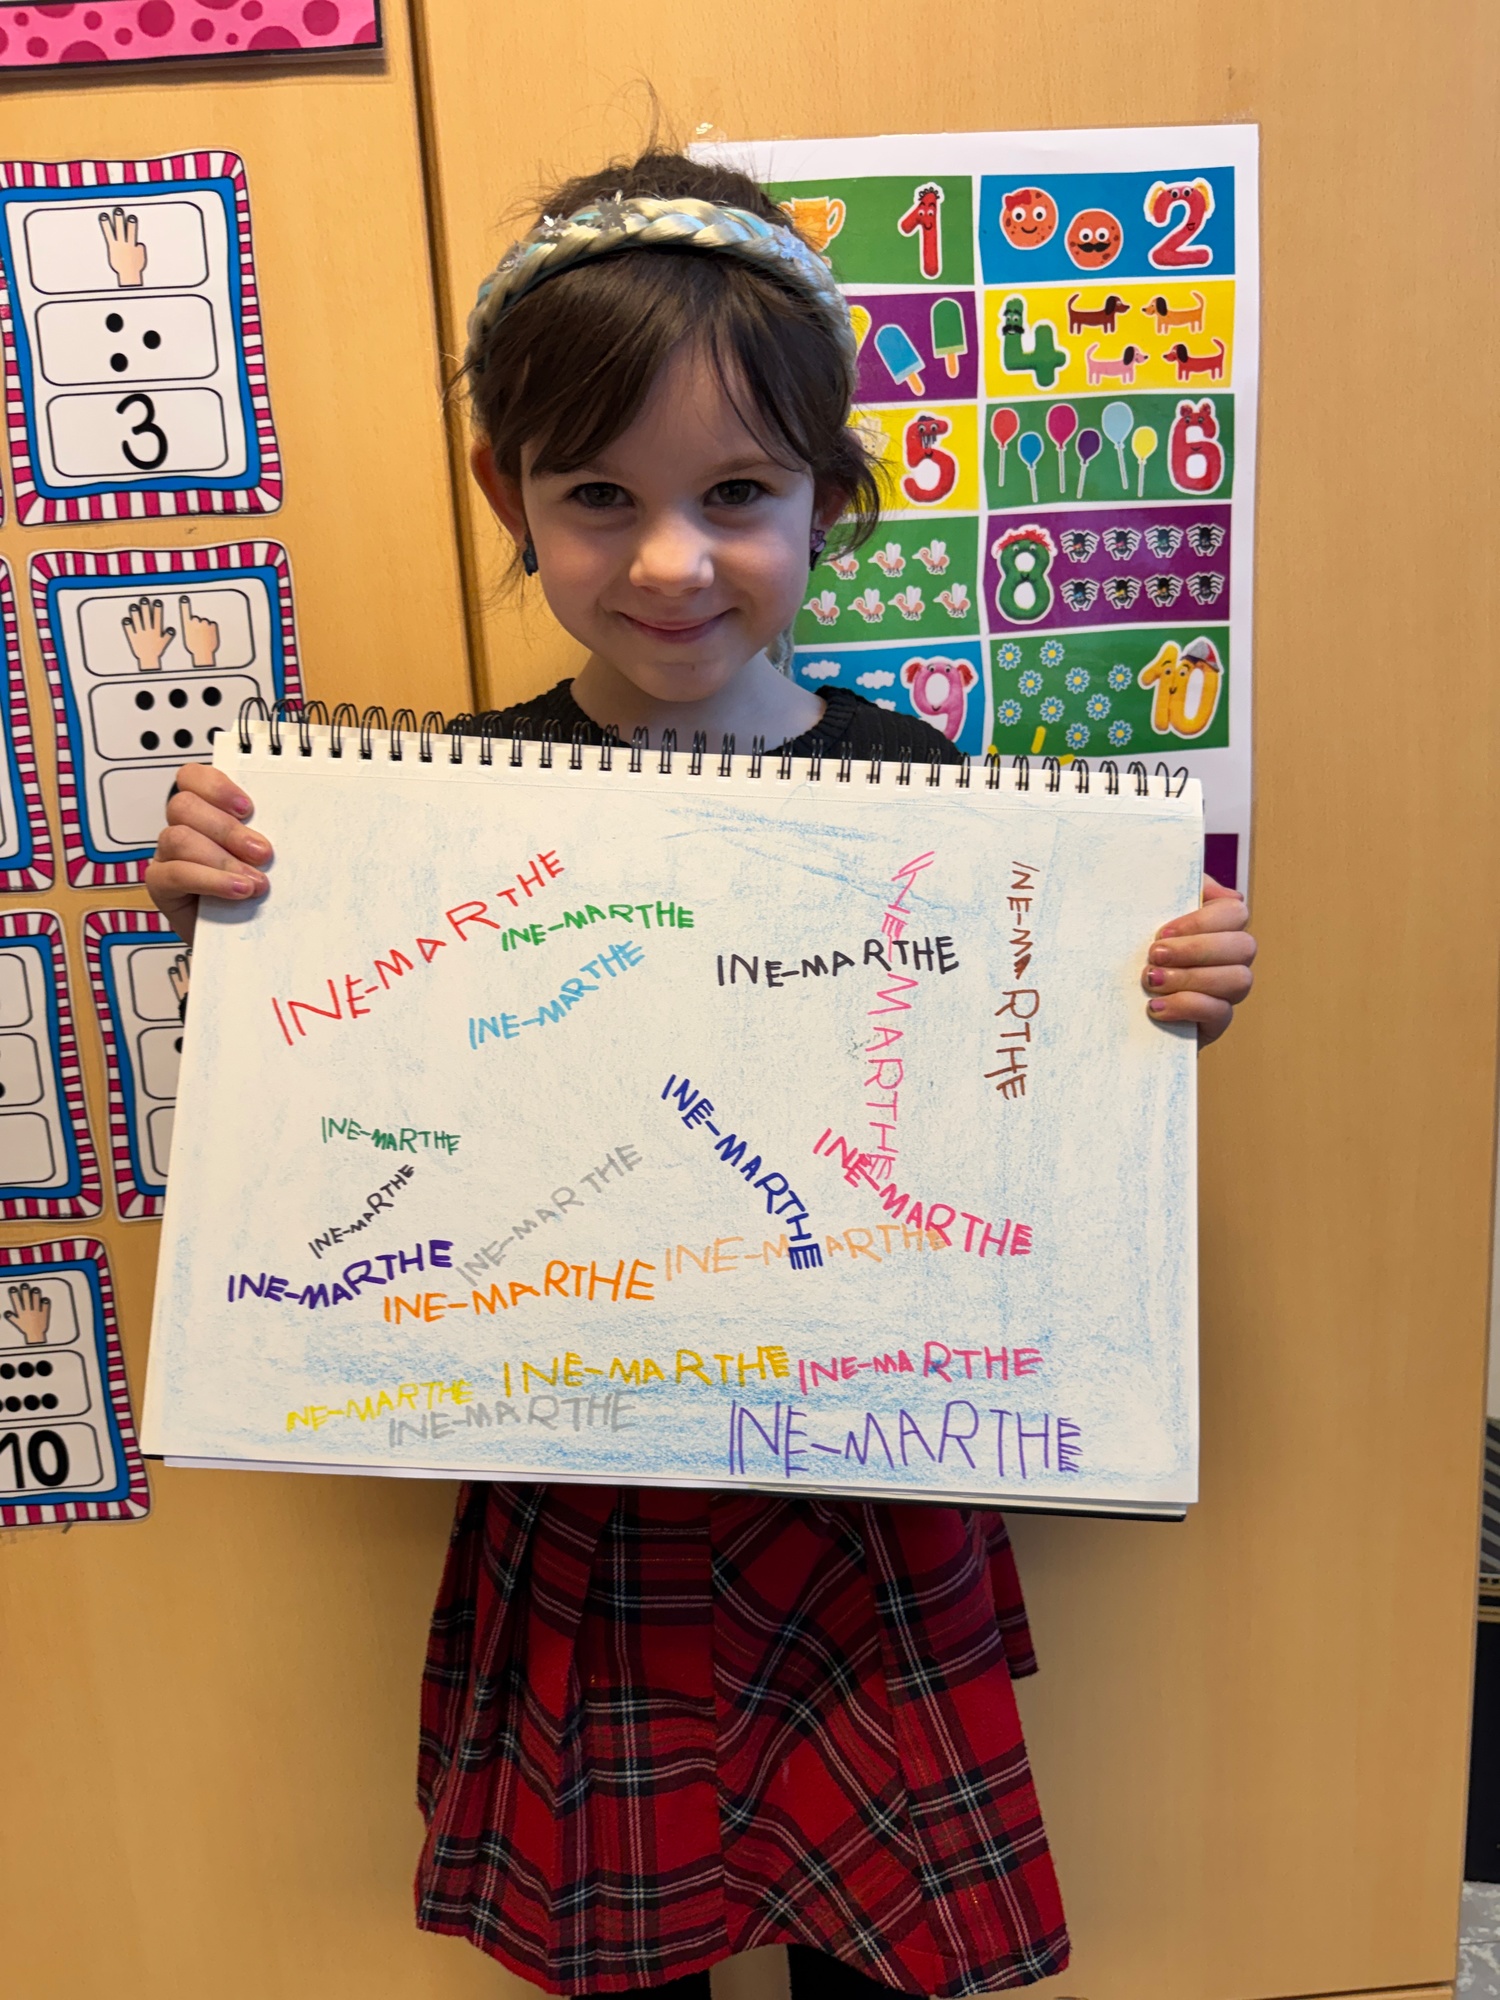 1
2
3
4
5
6
8
9
10
10
INE-MARTHE
INE-MARTHE
INE-MARTHE
INE-MARTHE
INE-MARTHE
INE-MARTHE
INE-MARTHE
INE-MARTHE
INE-MARTHE
INE-MARTHE
INE-MARTHE
INE-MARTHE
INE-MARTHE
INE-MARTHE
INE-MARTHE
INE-MARTHE
INE-MARTHE
INE-MARTHE
INE-MARTHE